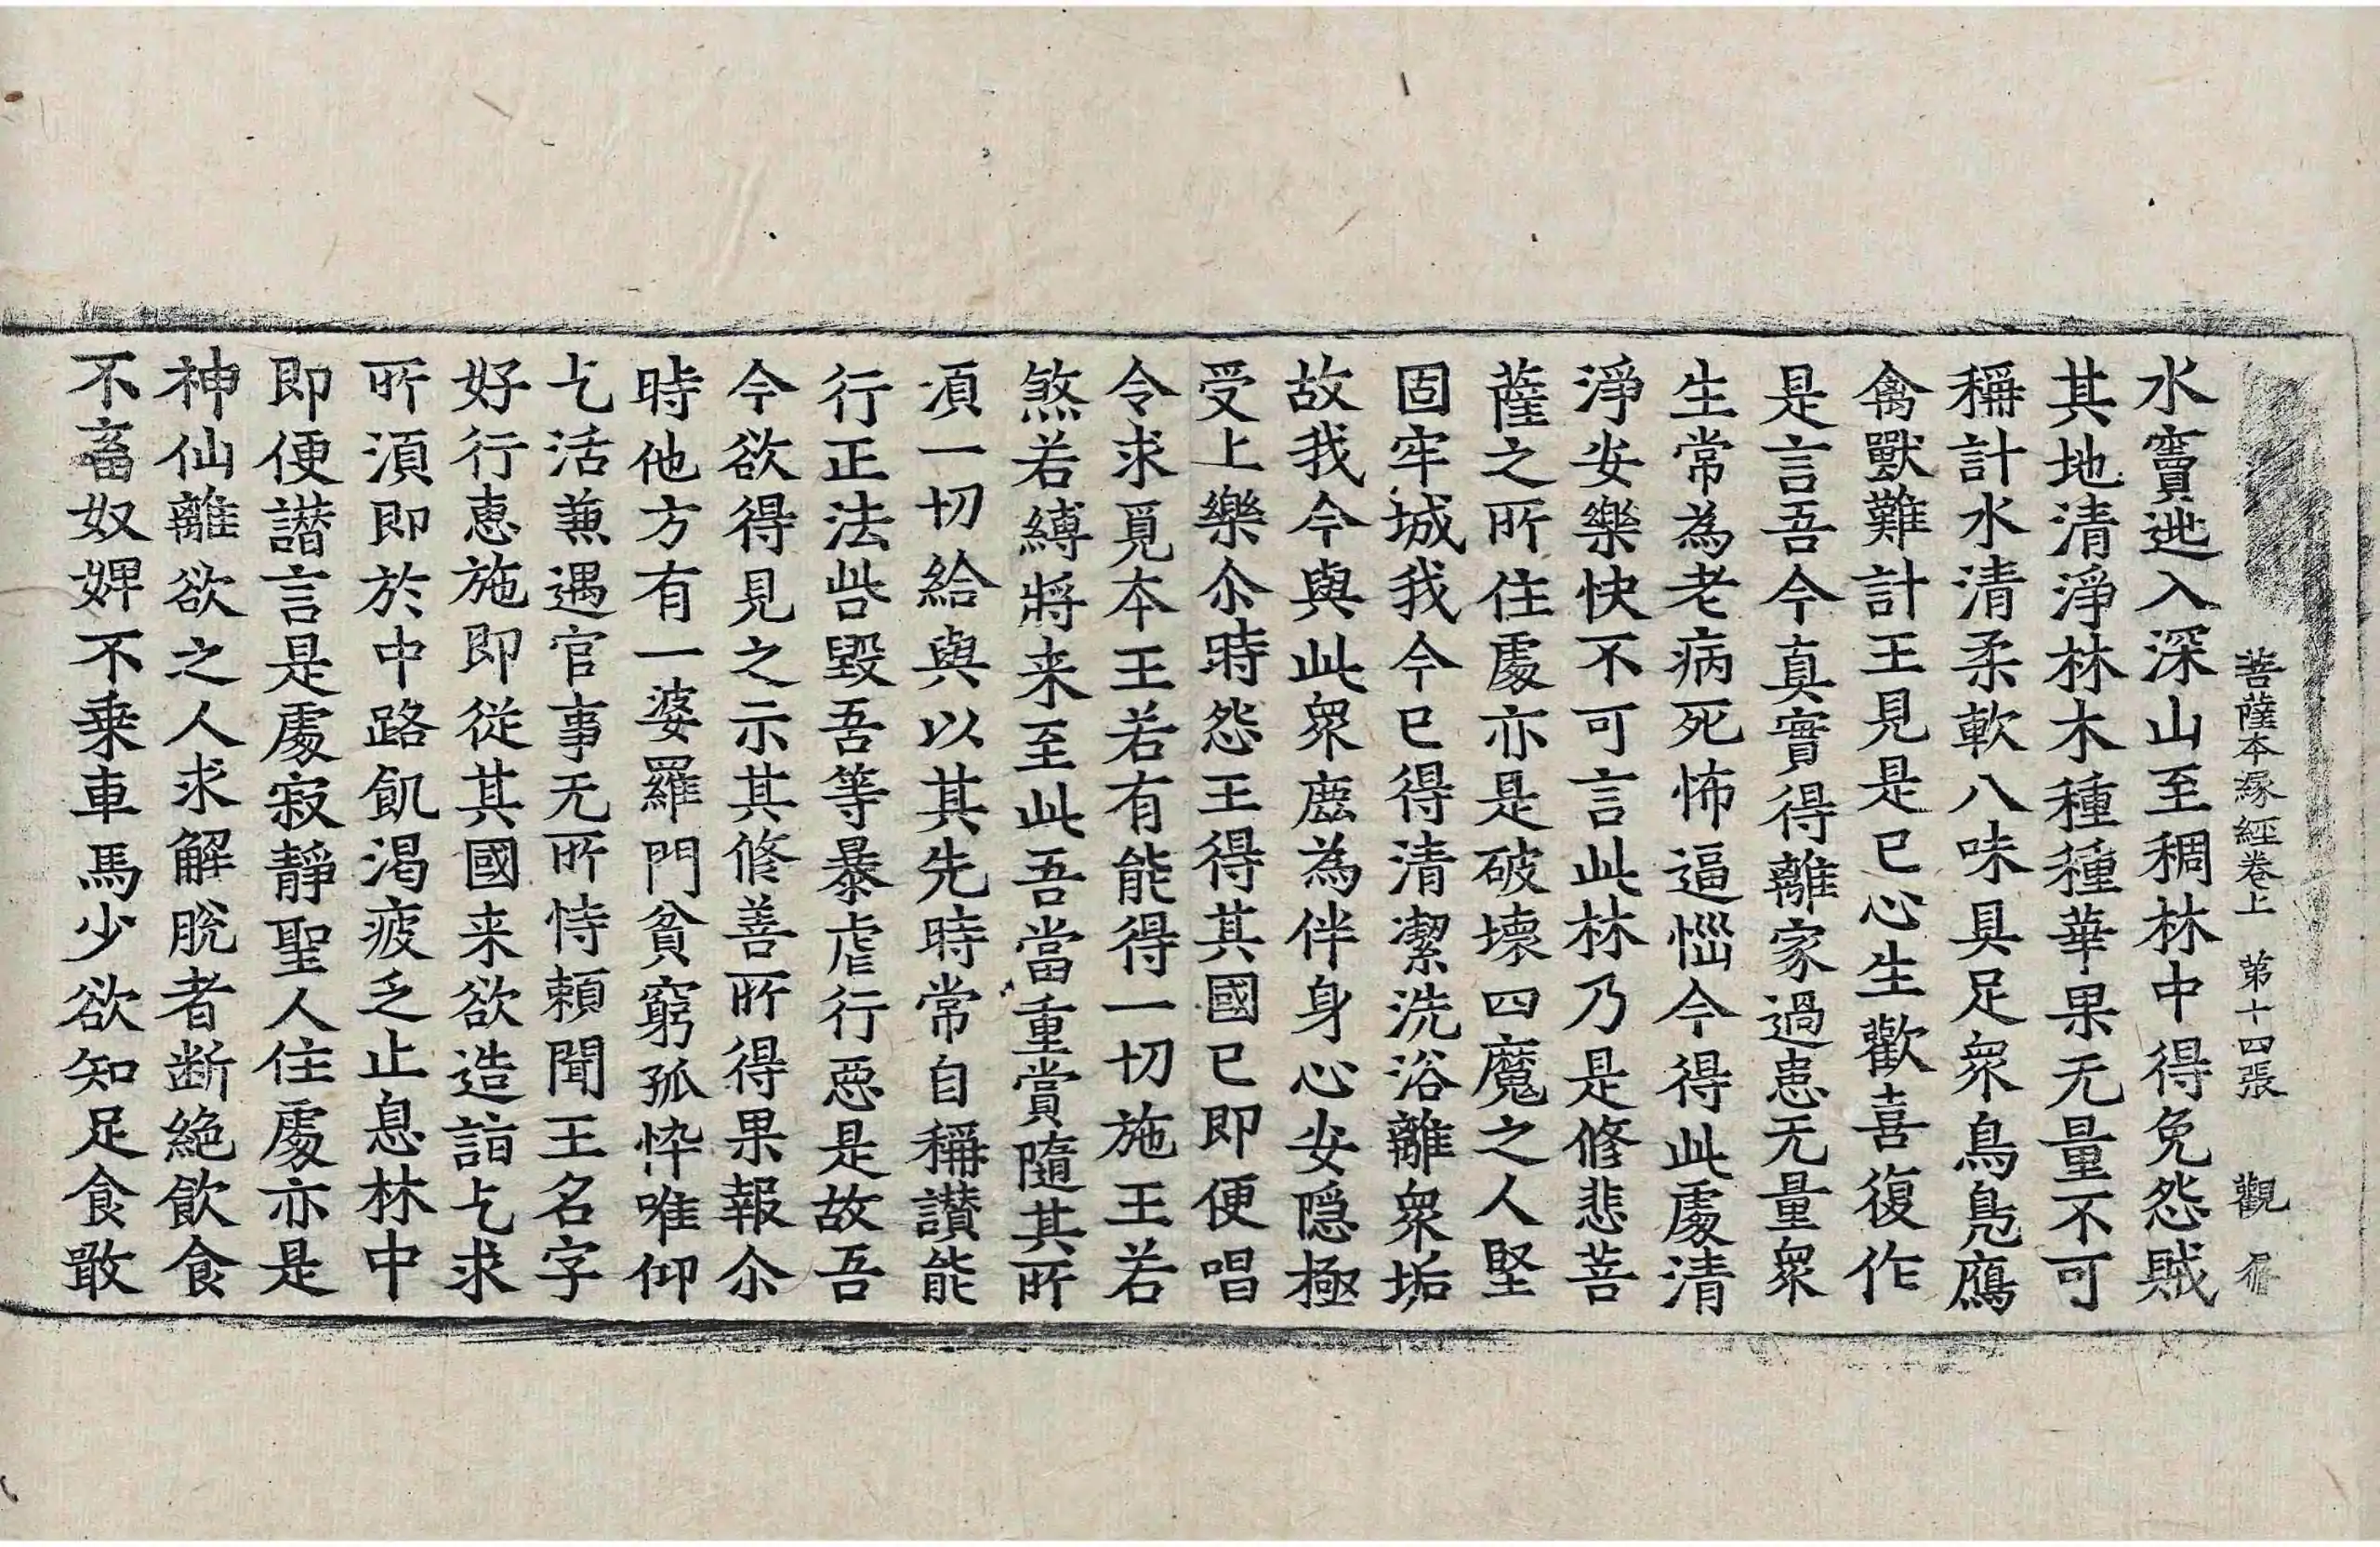 菩薩本縁經卷上 第十四張 觀
水竇逃入深山至稠林中得免怨賊
其地清淨林木種種華果无量不可
稱計水清柔軟八味具足衆鳥鳧鴈
禽獸難計王見是已心生歡喜復作
是言吾今真實得離家過患无量衆
生常為老病死怖逼惱今得此處清
淨安樂快不可言此林乃是修悲菩
薩之所住處亦是破壞四魔之人堅
固牢城我今已得清潔洗浴離衆垢
故我今與此衆鹿為伴身心安隱極
受上樂尒時怨王得其國已即便唱
令求覓本王若有能得一切施王若
煞若縛將来至此吾當重賞隨其所
湏一切給與以其先時常自稱讚能
行正法呰毀吾等暴虐行惡是故吾
今欲得見之示其修善所得果報尒
時他方有一婆羅門貧窮孤悴唯仰
乞活兼遇官事无所恃頼聞王名字
好行恵施即從其國来欲造詣乞求
所湏即於中路飢渴疲乏止息林中
即便譛言是處寂靜聖人住處亦是
神仙離欲之人求解脫者断絕飲食
不畜奴婢不乗車馬少欲知足食敢